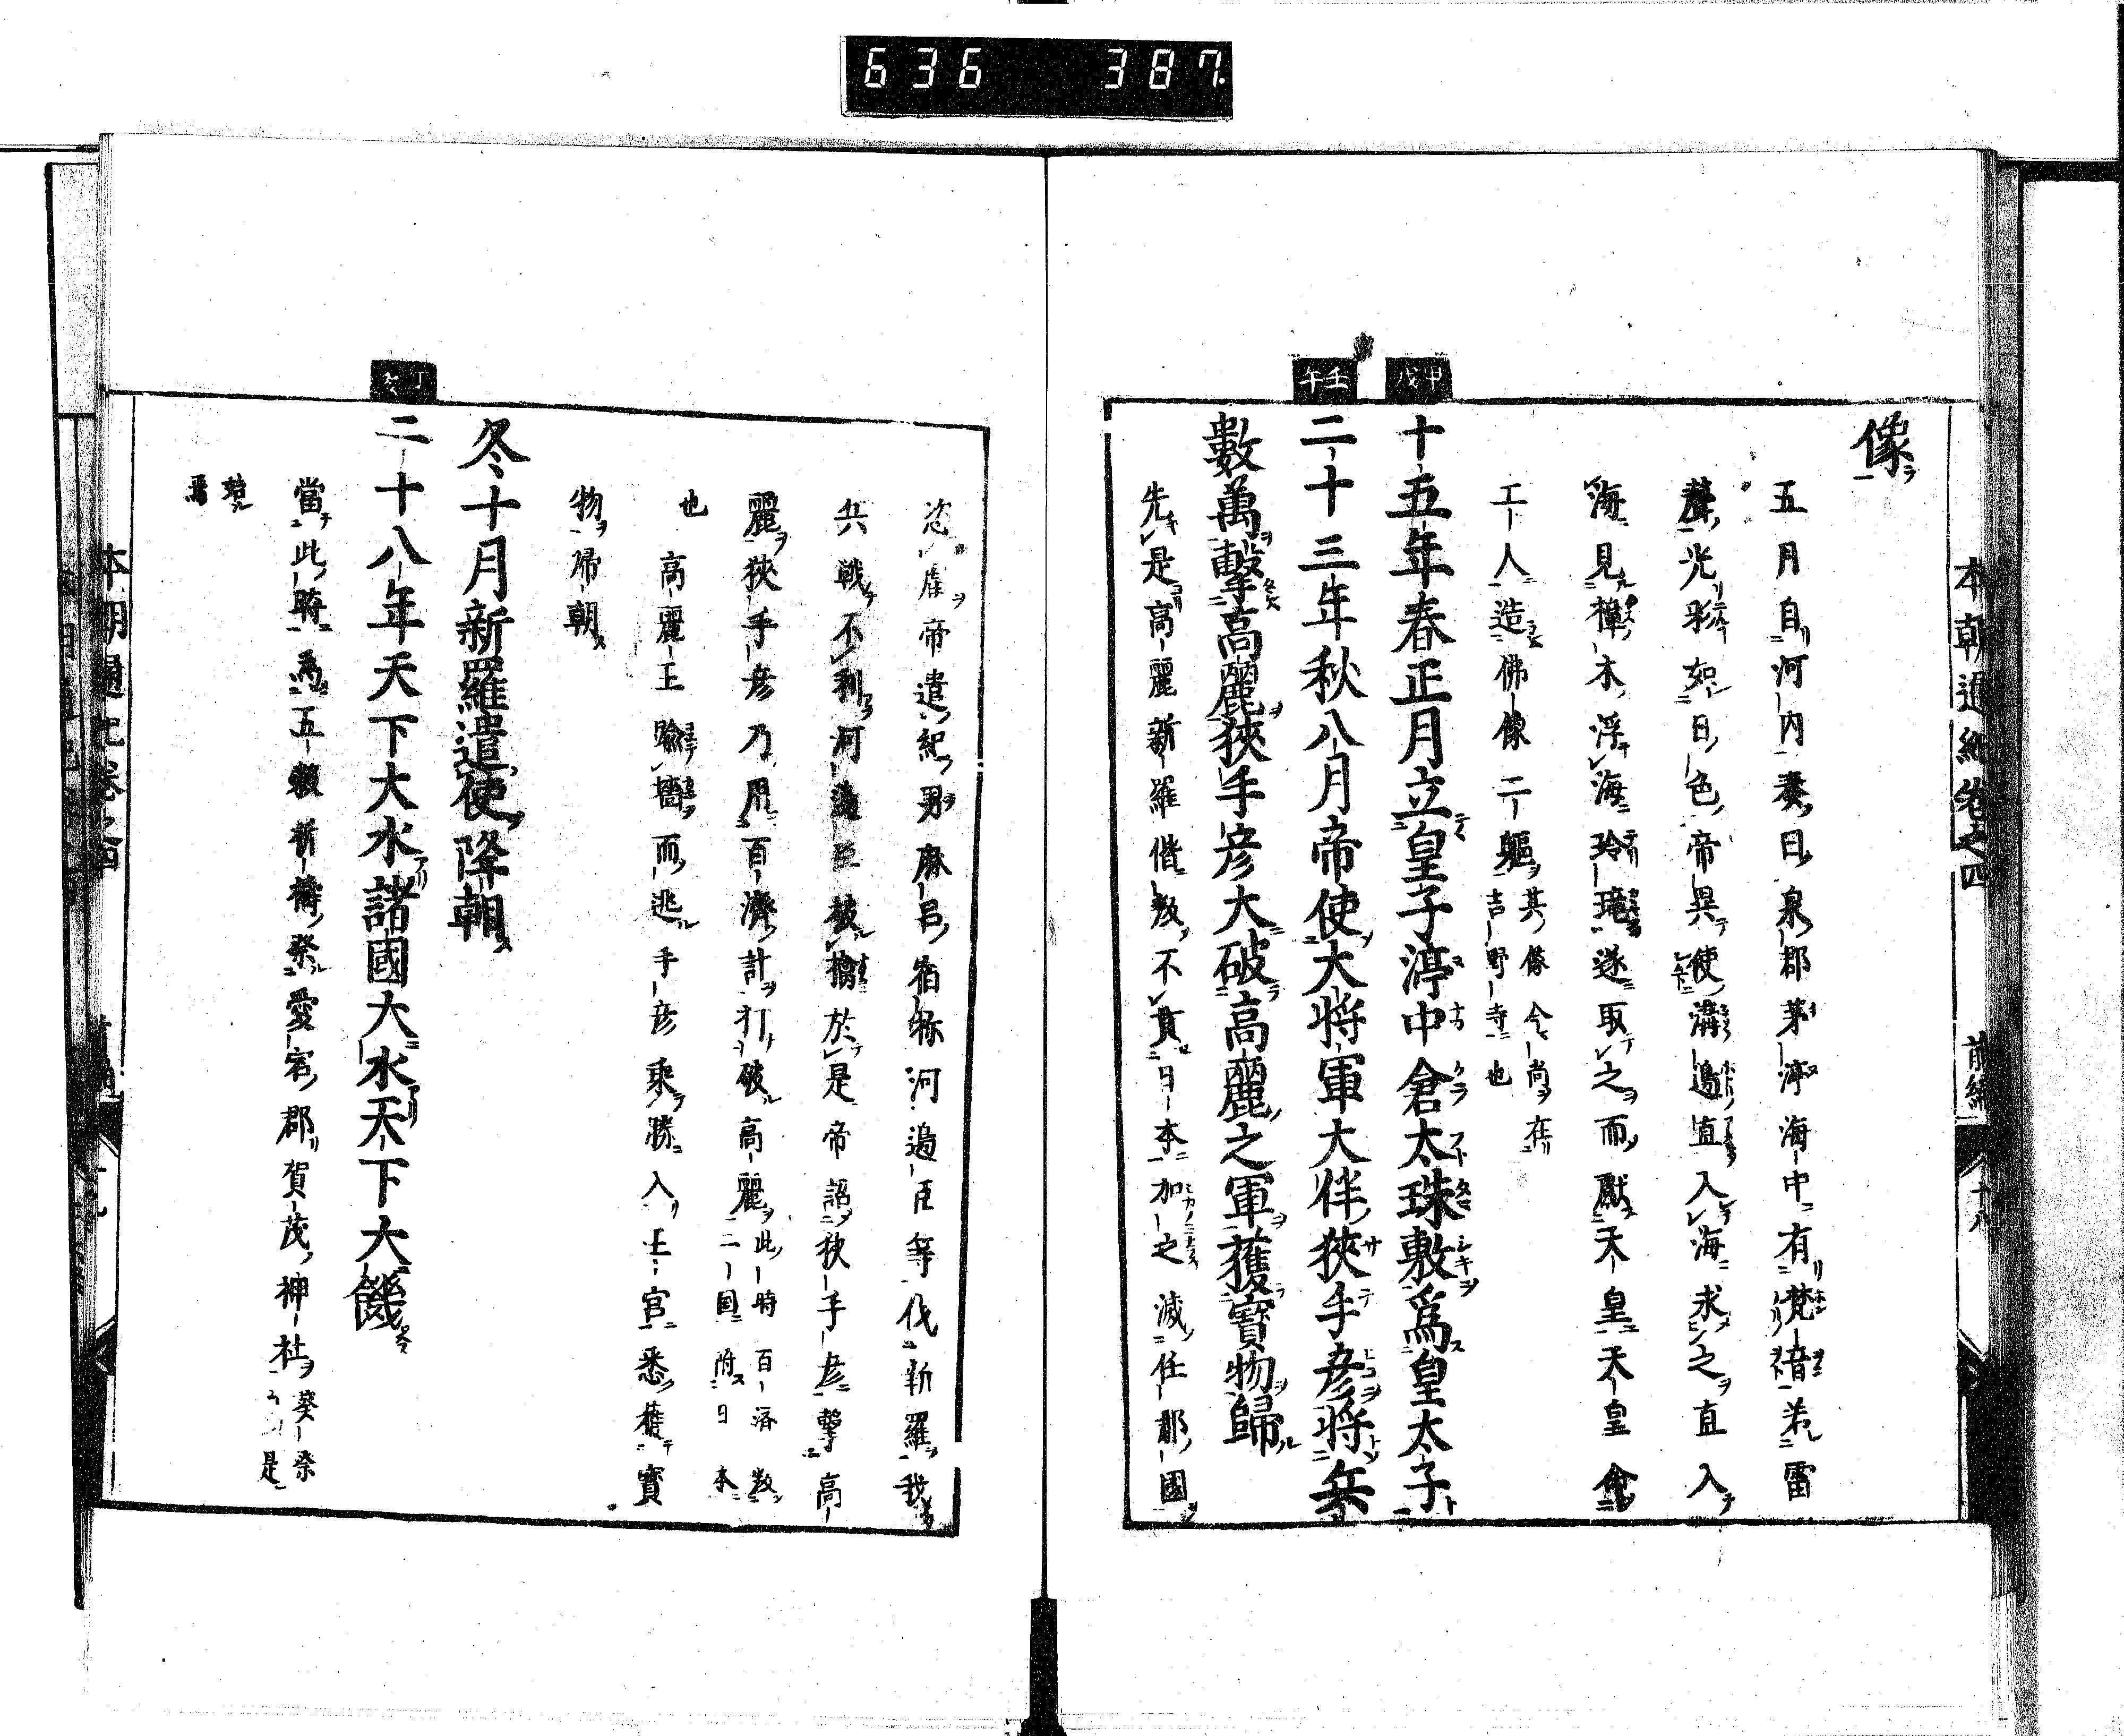 636 387
本朝通紀卷之四 前編 十八
像
五月自河内奏曰泉郡茅渟海中有梵音若雷
聲光彩如日色帝異使溝邊直入海求之直入
海見樟木浮海玲瓏遂取之而獻天皇天皇命
工人造佛像二軀其像今尚在
吉野寺也
甲戌
十五年春正月立皇子渟中倉太珠敷爲皇太子
壬午
二十三年秋八月帝使大將軍大伴狹手彦將兵
數萬擊高麗狹手彦大破高麗之軍獲寶物歸
先是高麗新羅偕叛不貢日本加之滅任那國
恣虐帝遣紀男麻呂宿祢河邊臣等伐新羅我
兵戦不利河邊臣被擒於是帝詔狹手彦擊高
麗狹手彦乃用百濟計打破高麗此時百済叛
二国附日本
也
高麗王踰墻而逃手彦乘勝入王宮悉獲寶
物帰朝
冬十月新羅遣使降朝
丁亥
二十八年天下大水諸國大水天下大饑
當此時爲五穀祈禱祭愛宕郡賀茂神社葵祭
是
始
焉
本朝通紀卷之四